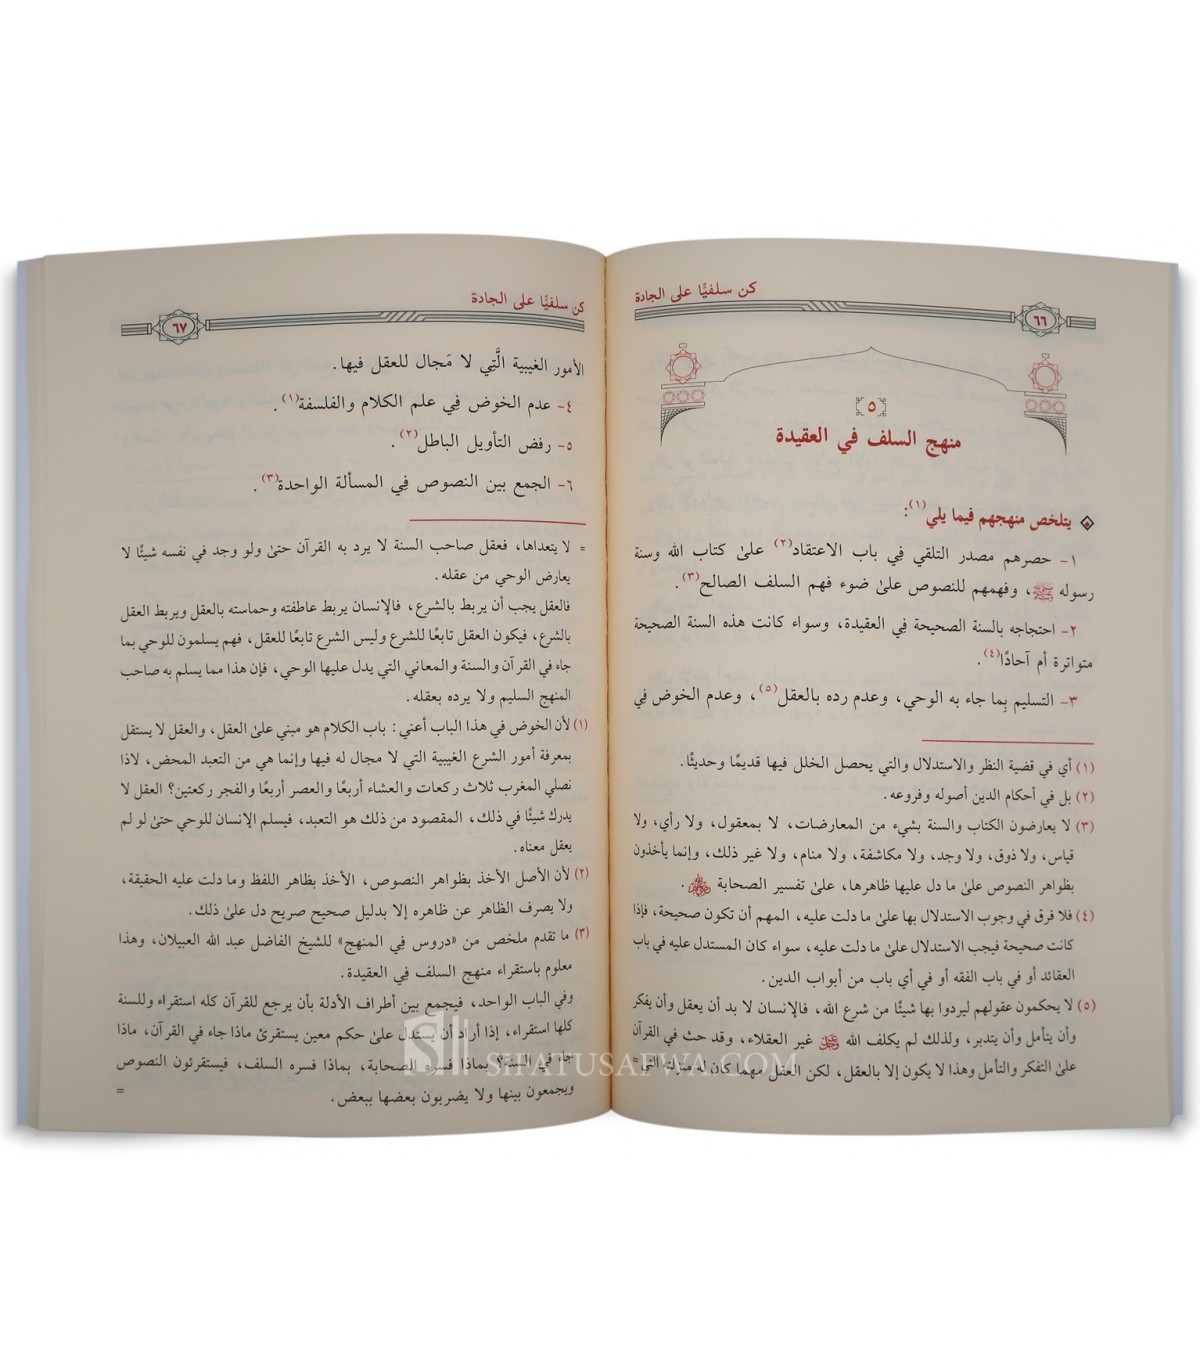 كن سلفيًّا على الجادة
٦٦
[٥]
منهج السلف في العقيدة
يتلخص منهجهم فيما يلي(١):
١- حصرهم مصدر التلقي فِي باب الاعتقاد(٢) علىٰ كتاب الله وسنة
رسوله ﷺ، وفهمهم للنصوص علىٰ ضوء فهم السلف الصالح(٣).
٢- احتجاجه بالسنة الصحيحة فِي العقيدة، وسواء كانت هذه السنة الصحيحة
متواترة أم آحادًا(٤).
٣- التسليم بِما جاء به الوحي، وعدم رده بالعقل(٥)، وعدم الخوض فِي
(١) أي في قضية النظر والاستدلال والتي يحصل الخلل فيها قديمًا وحديثًا.
(٢) بل في أحكام الدين أصوله وفروعه.
(٣) لا يعارضون الكتاب والسنة بشيء من المعارضات، لا بمعقول، ولا رأي، ولا
قياس، ولا ذوق، ولا وجد، ولا مكاشفة، ولا منام، ولا غير ذلك، وإنما يأخذون
بظواهر النصوص علىٰ ما دل عليها ظاهرها، علىٰ تفسير الصحابة ﵃.
(٤) فلا فرق في وجوب الاستدلال بها علىٰ ما دلت عليه، المهم أن تكون صحيحة، فإذا
كانت صحيحة فيجب الاستدلال علىٰ ما دلت عليه، سواء كان المستدل عليه في باب
العقائد أو في باب الفقه أو في أي باب من أبواب الدين.
(٥) لا يحكمون عقولهم ليردوا بها شيئًا من شرع الله، فالإنسان لا بد أن يعقل وأن يفكر
وأن يتأمل وأن يتدبر، ولذلك لم يكلف الله ﷻ غير العقلاء، وقد حث في القرآن
علىٰ التفكر والتأمل وهذا لا يكون إلا بالعقل، لكن العقل مهما كان له منزلته التي =
كن سلفيًّا على الجادة
٦٧
الأمور الغيبية الَّتِي لا مَجال للعقل فيها.
٤- عدم الخوض فِي علم الكلام والفلسفة(١).
٥- رفض التأويل الباطل(٢).
٦- الجمع بين النصوص فِي المسألة الواحدة(٣).
= لا يتعداها، فعقل صاحب السنة لا يرد به القرآن حتىٰ ولو وجد في نفسه شيئًا لا
يعارض الوحي من عقله.
فالعقل يجب أن يربط بالشرع، فالإنسان يربط عاطفته وحماسته بالعقل ويربط العقل
بالشرع، فيكون العقل تابعًا للشرع وليس الشرع تابعًا للعقل، فهم يسلمون للوحي بما
جاء في القرآن والسنة والمعاني التي يدل عليها الوحي، فإن هذا مما يسلم به صاحب
المنهج السليم ولا يرده بعقله.
(١) لأن الخوض في هذا الباب أعني: باب الكلام هو مبني علىٰ العقل، والعقل لا يستقل
بمعرفة أمور الشرع الغيبية التي لا مجال له فيها وإنما هي من التعبد المحض، لاذا
نصلي المغرب ثلاث ركعات والعشاء أربعًا والعصر أربعًا والفجر ركعتين؟ العقل لا
يدرك شيئًا في ذلك، المقصود من ذلك هو التعبد، فيسلم الإنسان للوحي حتىٰ لو لم
يعقل معناه.
(٢) لأن الأصل الأخذ بظواهر النصوص، الأخذ بظاهر اللفظ وما دلت عليه الحقيقة،
ولا يصرف الظاهر عن ظاهره إلا بدليل صحيح صريح دل علىٰ ذلك.
(٣) ما تقدم ملخص من «دروس فِي المنهج» للشيخ الفاضل عبد الله العبيلان، وهذا
معلوم باستقراء منهج السلف فِي العقيدة.
وفي الباب الواحد، فيجمع بين أطراف الأدلة بأن يرجع للقرآن كله استقراء وللسنة
كلها استقراء، إذا أراد أن يستدل علىٰ حكم معين يستقرئ ماذا جاء في القرآن، ماذا
جاء في السنة؟ بماذا فسره الصحابة، بماذا فسره السلف، فيستقرئون النصوص
ويجمعون بينها ولا يضربون بعضها ببعض. =
SIFATUSAFWA.COM